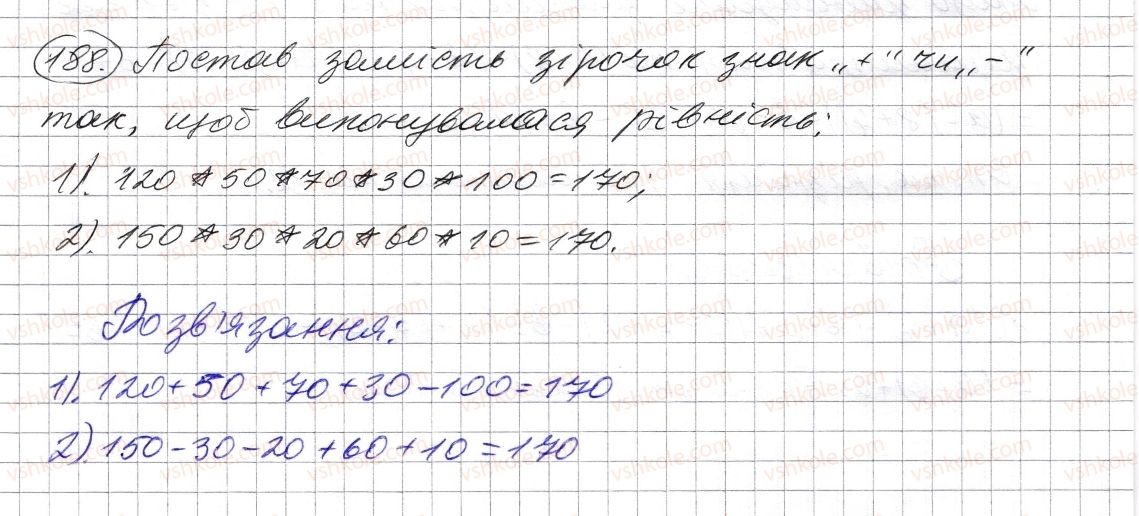 188. Постав замість зірочок знак „+" чи „-"
так, щоб виконувалася рівність:
1). 120 * 50 * 70 * 30 * 100 = 170;
2). 150 * 30 * 20 * 60 * 10 = 170.
Розв'язання:
1). 120 + 50 + 70 + 30 - 100 = 170
2). 150 - 30 - 20 + 60 + 10 = 170